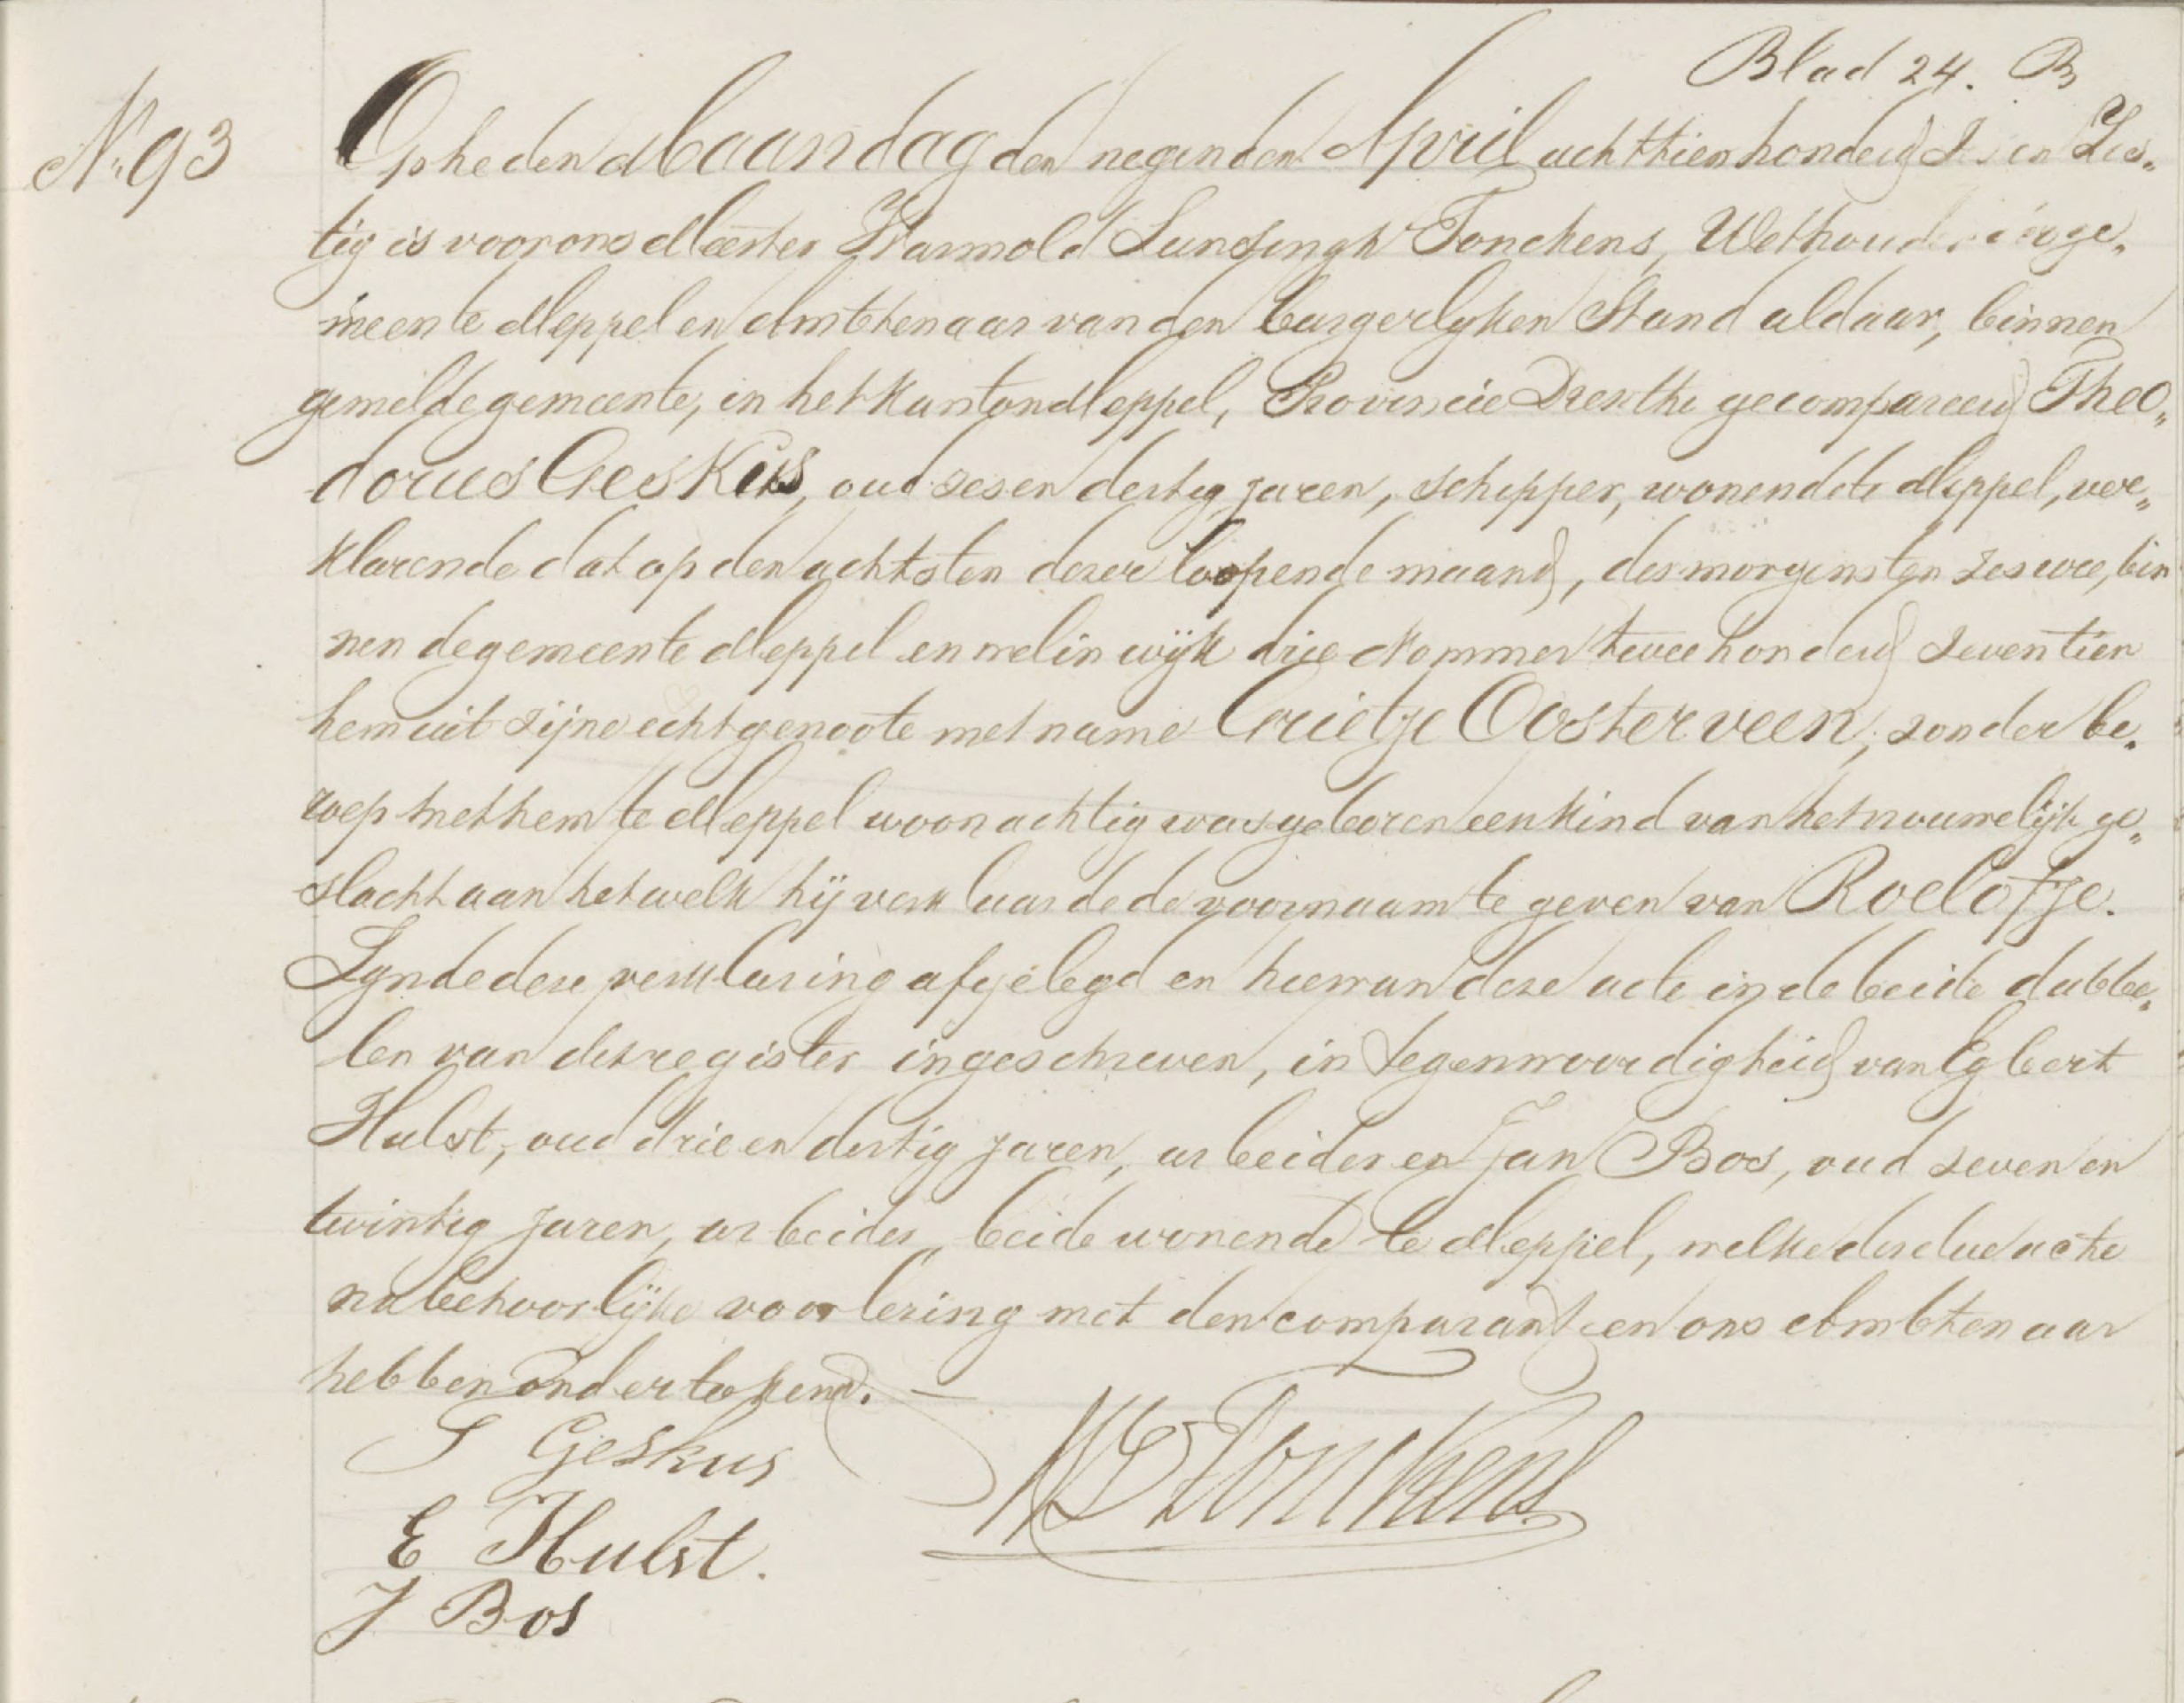 Blad 24. B
No. 93
Op heden Maandag den negenden April achttienhonderd Zes en Zes„
tig is voor ons Meester Warmold Lunsingh Tonckens, Wethouder der ge„
meente Meppel en Ambtenaar van den burgerlyken Stand aldaar, binnen
gemelde gemeente, in het Kanton Meppel, Provincie Drenthe gecompareerd Theo„
dorus Geskus, oud zes en dertig jaren, schipper, wonende te Meppel, ver„
klarende dat op den achtsten dezer loopende maand, des morgens ten zes ure, bin
nen de gemeente Meppel en wel in wijk drie Nommer twee honderd zeventien
hem uit zijne echtgenoote met name Grietje Oosterveen, zonder be„
roep met hem te Meppel woonachtig was geboren een kind van het vrouwelijk ge„
slacht aan hetwelk hij verklaarde de voornaam te geven van Roelofje.
Zynde deze verklaring afgelegd en hiervan deze acte in de beide dubbe„
len van dit register ingeschreven, in tegenwoordigheid van Egbert
Hulst, oud drie en dertig jaren, arbeider en Jan Bos, oud zeven en
twintig jaren, arbeider, beide wonende te Meppel, welke dezelve acte
na behoorlijke voorlezing met den comparant en ons Ambtenaar
hebben onderteekend. —
T Geskus
WLTonckens
E Hulst.
J Bos